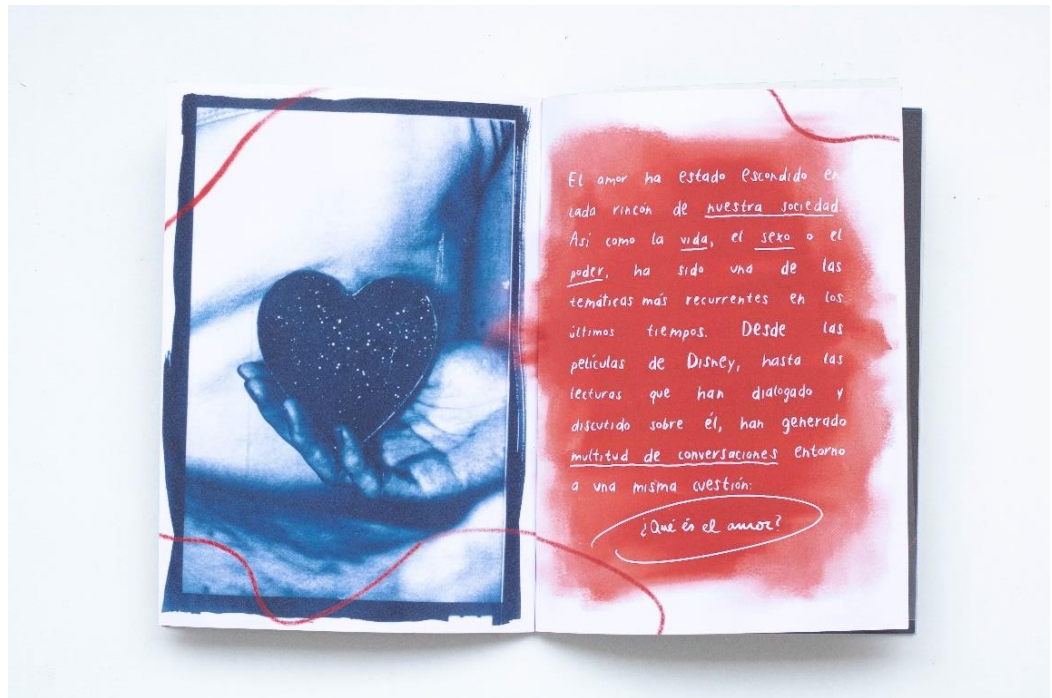 El amor ha estado escondido en
cada rincón de nuestra sociedad.
Así como la vida, el sexo o el
poder, ha sido una de las
temáticas más recurrentes en los
últimos tiempos. Desde las
películas de Disney, hasta las
lecturas que han dialogado y
discutido sobre él, han generado
multitud de conversaciones entorno
a una misma cuestión:
¿Qué és el amor?